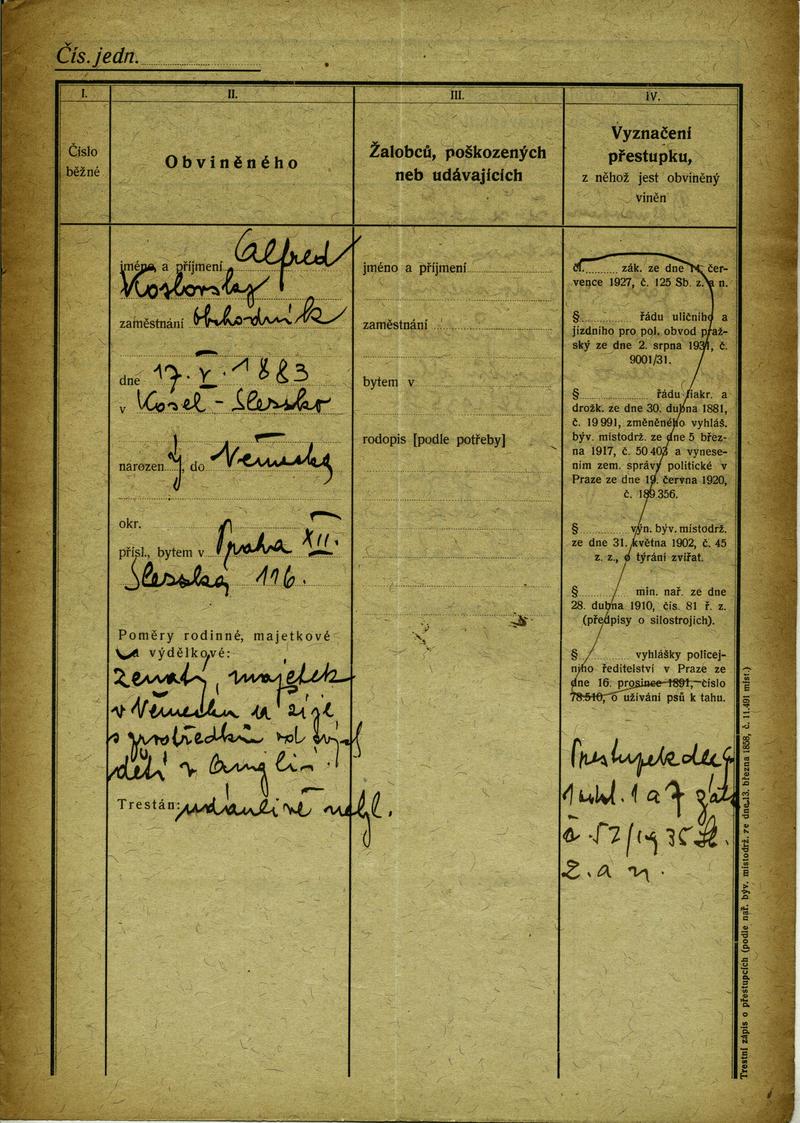 Čís. jedn.
I.
II.
III.
IV.
Číslo
běžné
Obviněného
Žalobců, poškozených
neb udávajících
Vyznačení
přestupku,
z něhož jest obviněný
viněn
jméno a příjmení Alfred
zaměstnání
dne 17. V. 1883
v Kosel - Slezsko
narozen ý, do Německa
okr.
přísl., bytem v Praha XII.
Slezská 116.
Poměry rodinné, majetkové
a výdělkové:
ženatý, majetek
v Německu a žije
z prostředků od svých
dětí v Anglii.
Trestán: údajně ne
jméno a příjmení
zaměstnání
bytem v
rodopis [podle potřeby]
čl. zák. ze dne 14. čer-
vence 1927, č. 125 Sb. z. a n.
§ řádu uličního a
jízdního pro pol. obvod praž-
ský ze dne 2. srpna 1931, č.
9001/31.
§ řádu fiakr. a
drožk. ze dne 30. dubna 1881,
č. 19 991, změněného vyhláš.
býv. místodrž. ze dne 5 břez-
na 1917, č. 50 403 a vynese-
ním zem. správy politické v
Praze ze dne 19. června 1920,
č. 189.356.
§ výn. býv. místodrž.
ze dne 31. května 1902, č. 45
z. z., o týrání zvířat.
§ min. nař. ze dne
28. dubna 1910, čís. 81 ř. z.
(předpisy o silostrojích).
§ vyhlášky policej-
ního ředitelství v Praze ze
dne 16. prosince 1891, číslo
78.510, o užívání psů k tahu.
Přestupek dle §
1 odst. 1 a 7 zák.
č. 52/1935 Sb.
z. a n.
Trestní zápis o přestupcích (podle nař. býv. místodrž. ze dne 13. března 1858, č. 11.491 míst.)